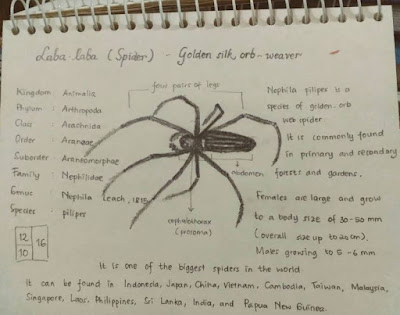 Laba-laba (Spider) - Golden silk orb-weaver
Kingdom : Animalia
Phylum : Arthropoda
Class : Arachnida
Order : Araneae
Suborder : Araneomorphae
Family : Nephilidae
Genus : Nephila Leach, 1815
Species : pilipes
12
10
16
four pairs of legs
abdomen
cephalothorax
(prosoma)
Nephila pilipes is a
species of golden orb
web spider
It is commonly found
in primary and secondary
forests and gardens.
Females are large and grow
to a body size of 30-50 mm
(overall size up to 20 cm).
Males growing to 5-6 mm
It is one of the biggest spiders in the world
It can be found in Indonesia, Japan, China, Vietnam, Cambodia, Taiwan, Malaysia,
Singapore, Laos, Philippines, Sri Lanka, India, and Papua New Guinea.